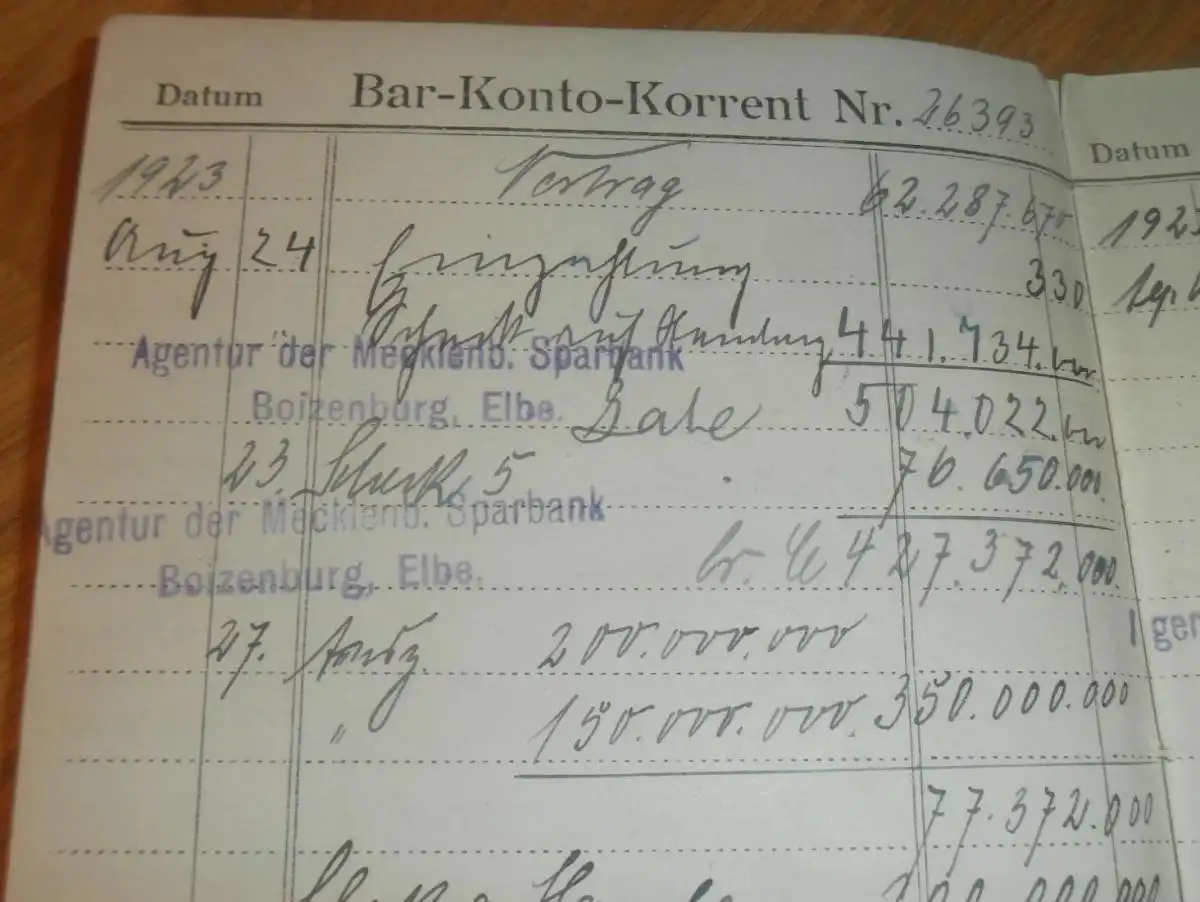 Datum Bar-Konto-Korrent Nr. 26393
1923 Vortrag 62.287.670
Aug 24 Einzahlung 330
Scheck auf Hamburg 441.734.000
Agentur der Mecklenb. Sparbank
Boizenburg, Elbe. 504.022.000
23. Scheck 5 76.650.000
Agentur der Mecklenb. Sparbank
Boizenburg, Elbe. 427.372.000
27. Ausz. 200.000.000
" 150.000.000. 350.000.000
77.372.000
Datum
1923